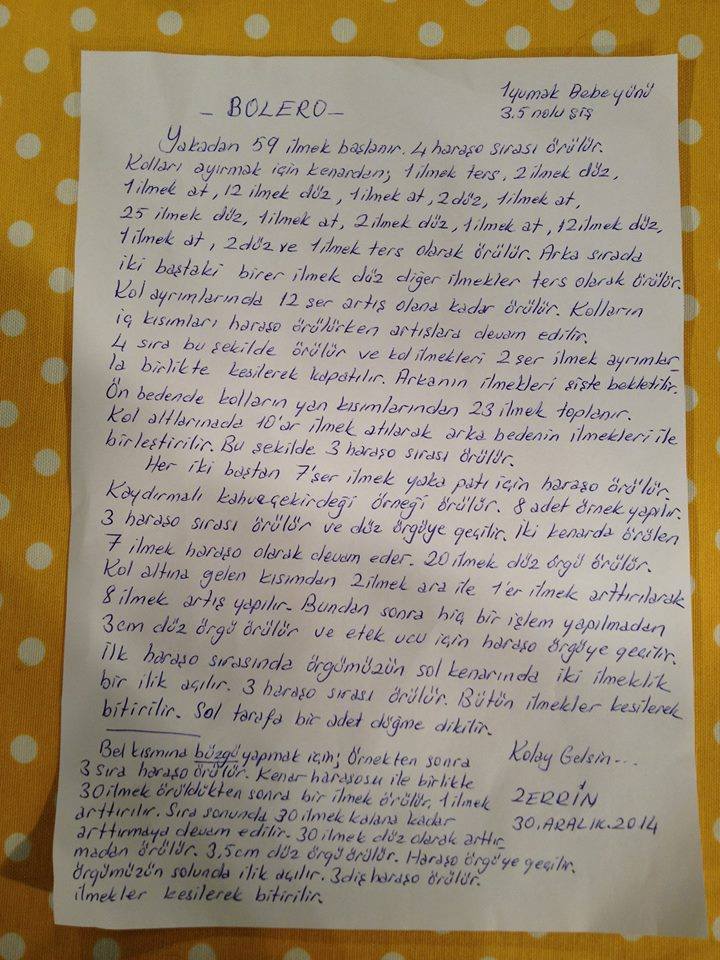 1 yumak Bebe yünü
3.5 nolu şiş
- BOLERO -
Yakadan 59 ilmek başlanır. 4 haraşo sırası örülür.
Kolları ayırmak için kenardan; 1 ilmek ters, 2 ilmek düz,
1 ilmek at, 12 ilmek düz, 1 ilmek at, 2 düz, 1 ilmek at,
25 ilmek düz, 1 ilmek at, 2 ilmek düz, 1 ilmek at, 12 ilmek düz,
1 ilmek at, 2 düz ve 1 ilmek ters olarak örülür. Arka sırada
iki baştaki birer ilmek düz diğer ilmekler ters olarak örülür.
Kol ayrımlarında 12 şer artış olana kadar örülür. Kolların
iç kısımları haraşo örülürken artışlara devam edilir.
4 sıra bu şekilde örülür ve kol ilmekleri 2 şer ilmek ayrımlar-
la birlikte kesilerek kapatılır. Arkanın ilmekleri şişte bekletilir.
Ön bedende kolların yan kısımlarından 23 ilmek toplanır.
Kol altlarınada 10'ar ilmek atılarak arka bedenin ilmekleri ile
birleştirilir. Bu şekilde 3 haraşo sırası örülür.
Her iki baştan 7'şer ilmek yaka patı için haraşo örülür.
Kaydırmalı kahve çekirdeği örneği örülür. 8 adet örnek yapılır.
3 haraşo sırası örülür ve düz örgüye geçilir. İki kenarda örülen
7 ilmek haraşo olarak devam eder. 20 ilmek düz örgü örülür.
Kol altına gelen kısımdan 2 ilmek ara ile 1'er ilmek arttırılarak
8 ilmek artış yapılır. Bundan sonra hiç bir işlem yapılmadan
3 cm düz örgü örülür ve etek ucu için haraşo örgüye geçilir.
İlk haraşo sırasında örgümüzün sol kenarında iki ilmeklik
bir ilik açılır. 3 haraşo sırası örülür. Bütün ilmekler kesilerek
bitirilir. Sol tarafa bir adet düğme dikilir.
Bel kısmına büzgü yapmak için; Örnekten sonra
3 sıra haraşo örülür. Kenar haraşosu ile birlikte
30 ilmek örüldükten sonra bir ilmek örülür, 1 ilmek
arttırılır. Sıra sonunda 30 ilmek kalana kadar
arttırmaya devam edilir. 30 ilmek düz olarak arttır-
madan örülür. 3,5 cm düz örgü örülür. Haraşo örgüye geçilir.
Örgümüzün solunda ilik açılır. 3 diş haraşo örülür.
ilmekler kesilerek bitirilir.
Kolay Gelsin...
ZERRİN
30.ARALIK.2014